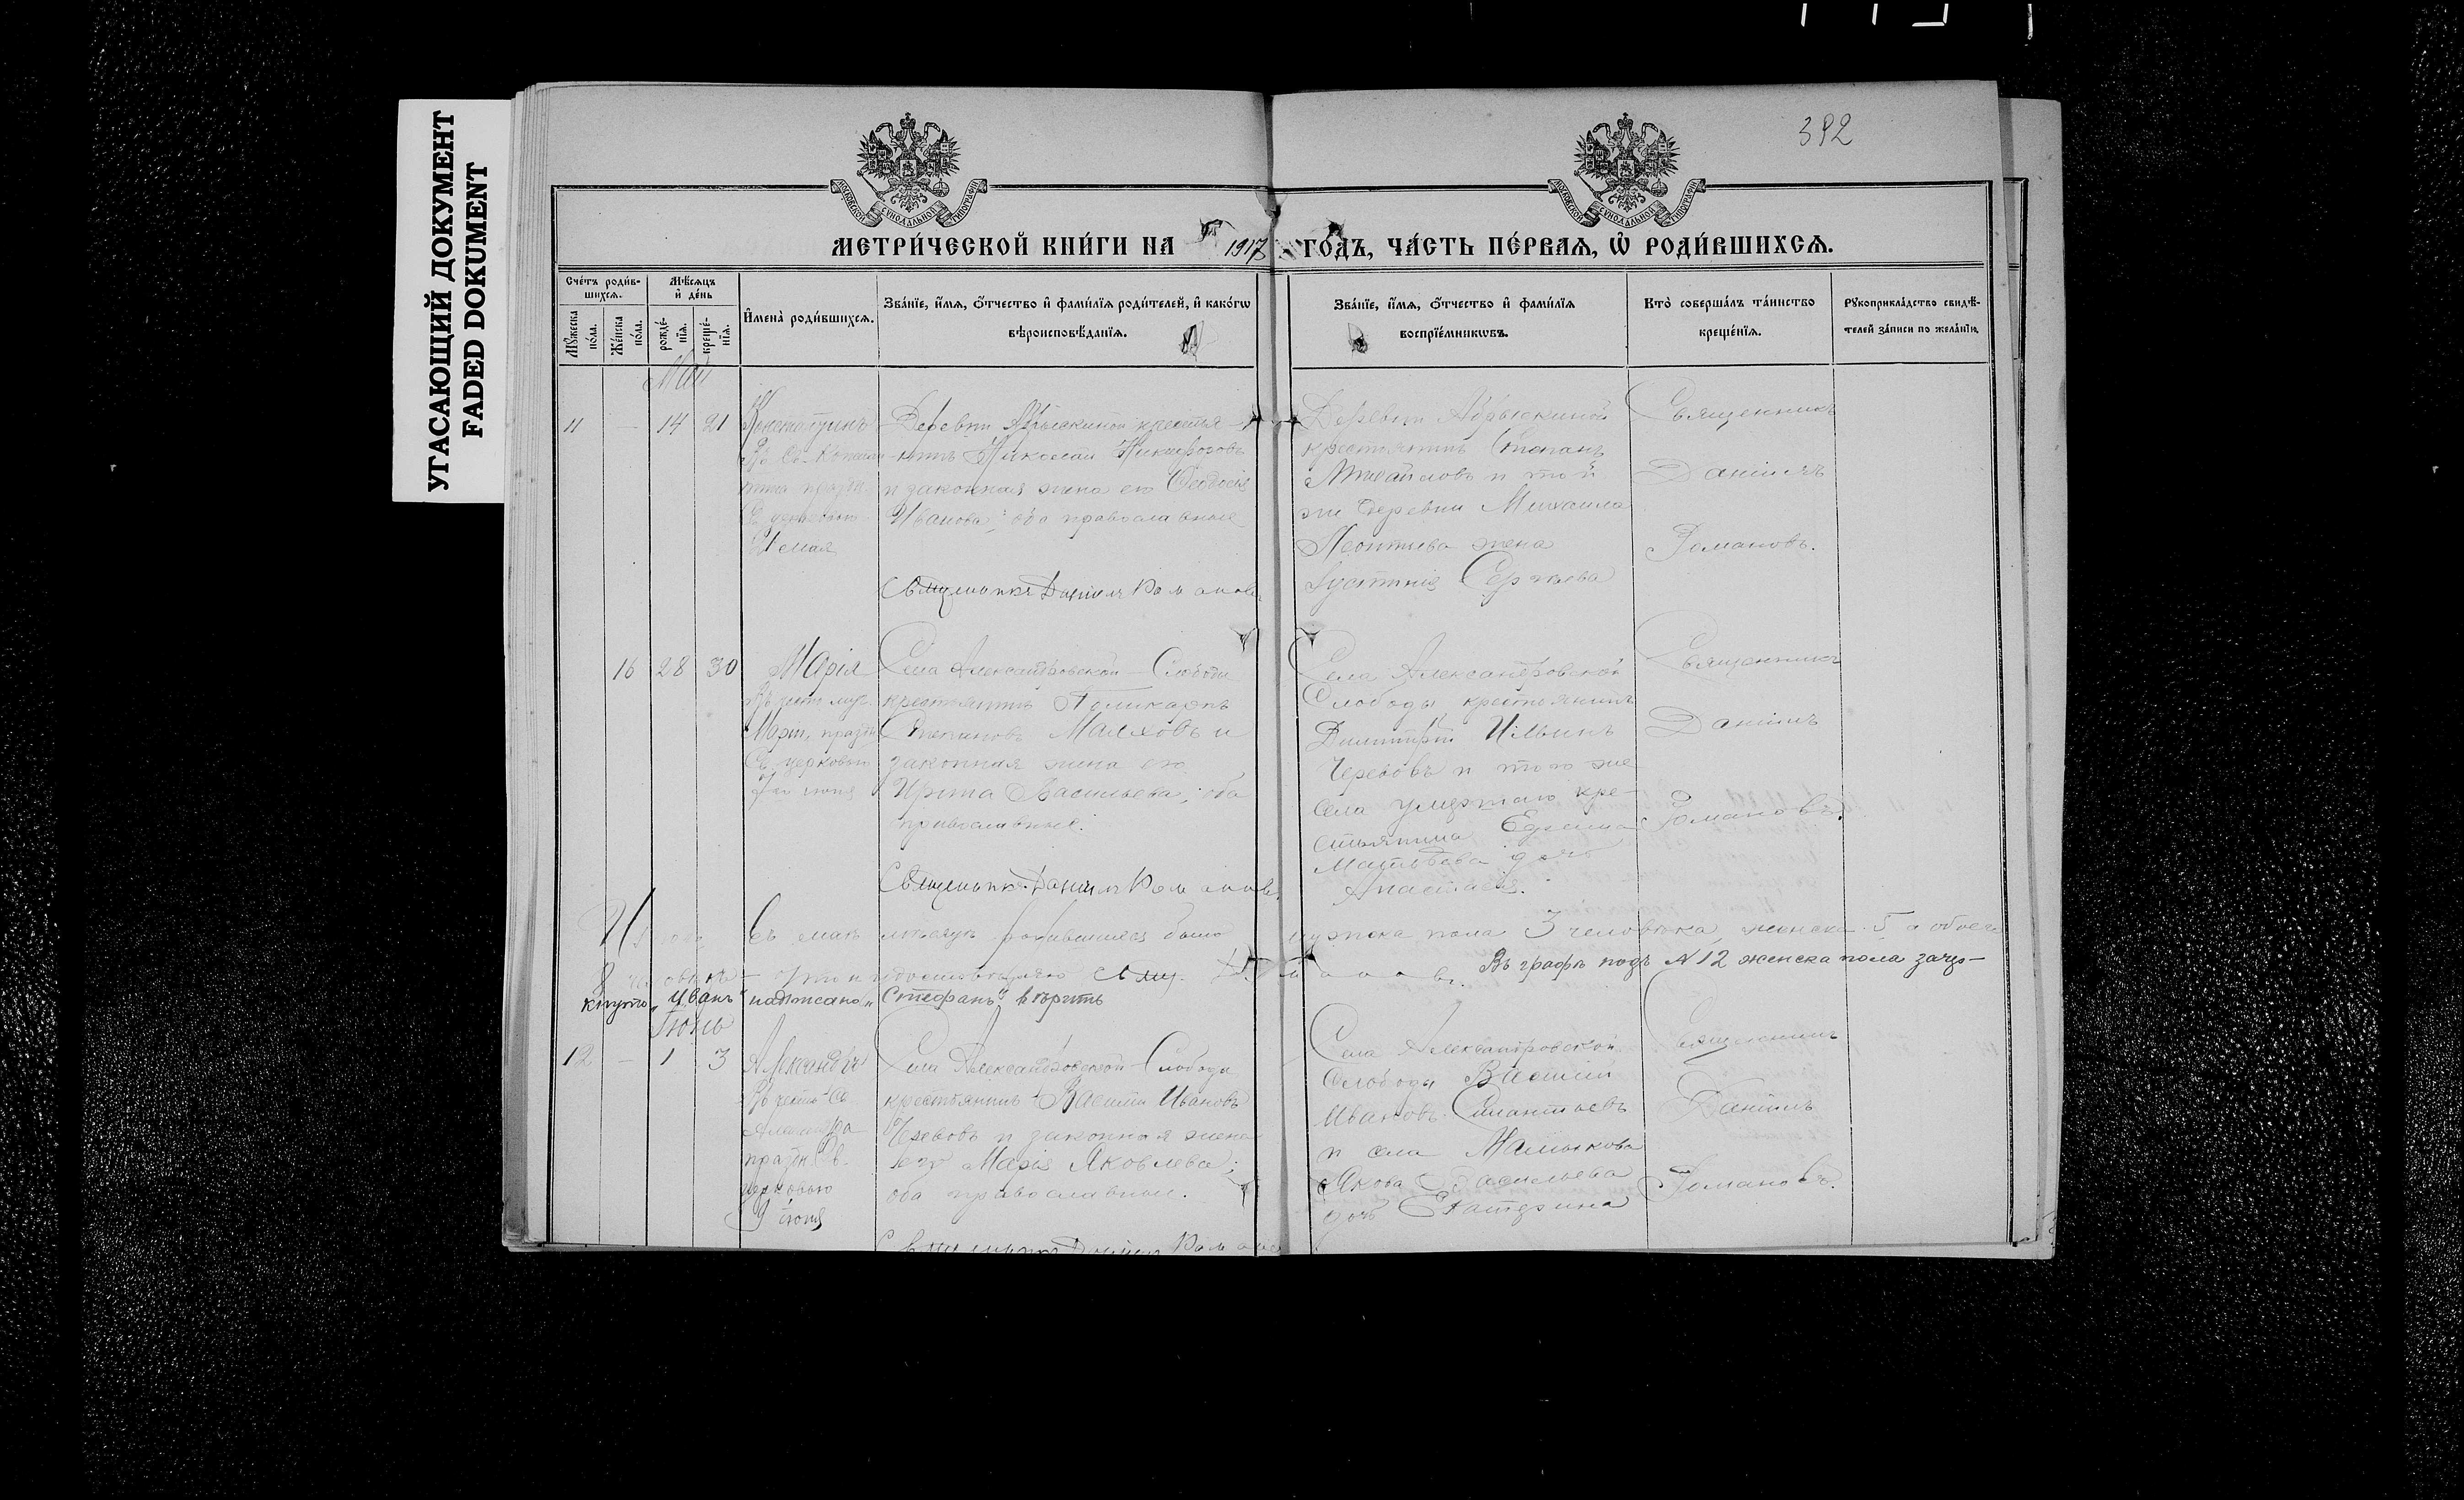 УГАСАЮЩИЙ ДОКУМЕНТ
FADED DOKUMENT
392
МОСКОВСКОЙ СѴНОДАЛЬНОЙ ТИПОГРАФІИ
МОСКОВСКОЙ СѴНОДАЛЬНОЙ ТИПОГРАФІИ
МЕТРИ́ЧЕСКОЙ КНИ́ГИ НА 1917 ГО́ДЪ, ЧА́СТЬ ПЕ́РВАѦ, Ѡ РОДИ́ВШИХСѦ.
Сче́тъ роди́в-
шихсѧ.
Мꙋ́жеска по́ла.
Же́нска по́ла.
Мѣ́сѧцъ и де́нь
рожде́-
нїѧ.
креще́-
нїѧ.
Имена̀ роди́вшихсѧ.
Зва́нїе, и́мѧ, ѻ́тчество и фами́лїѧ роди́телей, и како́гѡ
вѣроисповѣ́данїѧ.
Зва́нїе, и́мѧ, ѻ́тчество и фами́лїѧ
воспрїе́мникѡвъ.
Кто̀ соверша́лъ та́инство
креще́нїѧ.
Рꙋкоприкла́дство свидѣ́-
телей за́писи по жела́нїю.
Май
11 — 14 21
Константинъ
21 мая
Деревни Абрыскиной крестья-
нинъ Николай Никифоровъ
и законная жена его Ѳеодосія
Иванова; оба православные
Священникъ Даніилъ Романовъ
Деревни Абрыскиной
крестьянинъ Степанъ
и той
же деревни Михаила
Леонтьева жена
Іустинія Сергѣева
Священникъ
Даніилъ
Романовъ.
16 28 30
Марія
Въ честь муч.
Маріи, праздн.
Св. церковью
7го іюня
Села Александровской Слободы
крестьянинъ Поликарпъ
Степановъ Маслховъ и
законная жена его
Ирина Васильева; оба
православные.
Священникъ Даніилъ Романовъ.
Села Александровской
Слободы крестьянинъ
Димитрій Ильинъ
Черевовъ и того же
села умершаго кре-
стьянина
Матвѣева дочь
Анастасія.
Священникъ
Даніилъ
Романовъ.
Въ маѣ мѣсяцѣ родившихся было мужска пола 3 человѣка, женска 5 а обоего
8 человѣкъ
Въ графѣ подъ № 12 женска пола заче-
кнуто „Иванъ“ написано „Стефанъ“ вѣрить
Іюнь
12 — 1 3
Александръ
Въ честь Св.
Александра
праздн. Св.
церковью
9 іюня
Села Александровской Слободы
крестьянинъ Василій Ивановъ
Черевовъ и законная жена
его Марія Яковлева;
оба православные.
Священникъ Даніилъ Романовъ
Села Александровской
Слободы Василій
Ивановъ Силантьевъ
и села
Якова Васильева
дочь Екатерина
Священникъ
Даніилъ
Романовъ.